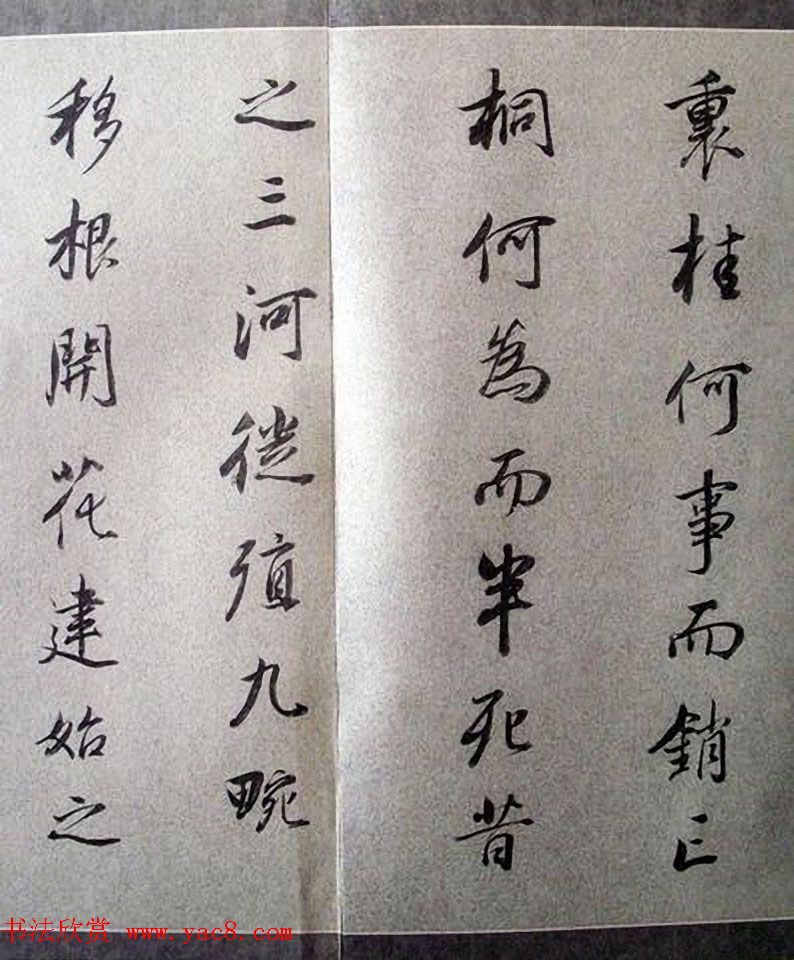 裏桂何事而銷亡
桐何為而半死昔
之三河徙殖九畹
移根開花建始之
书法欣赏 www.yac8.com